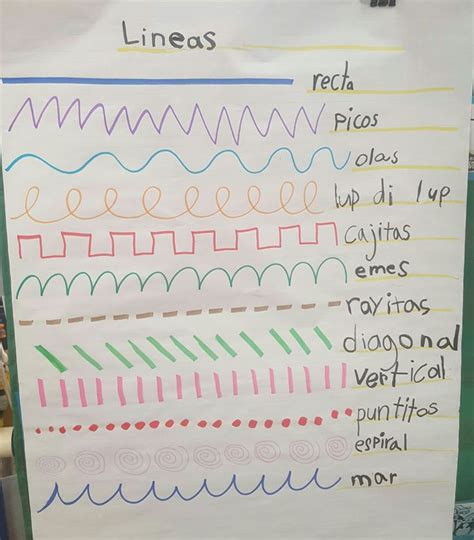 Lineas
recta
picos
olas
lup di lup
cajitas
emes
rayitas
diagonal
vertical
puntitos
espiral
mar